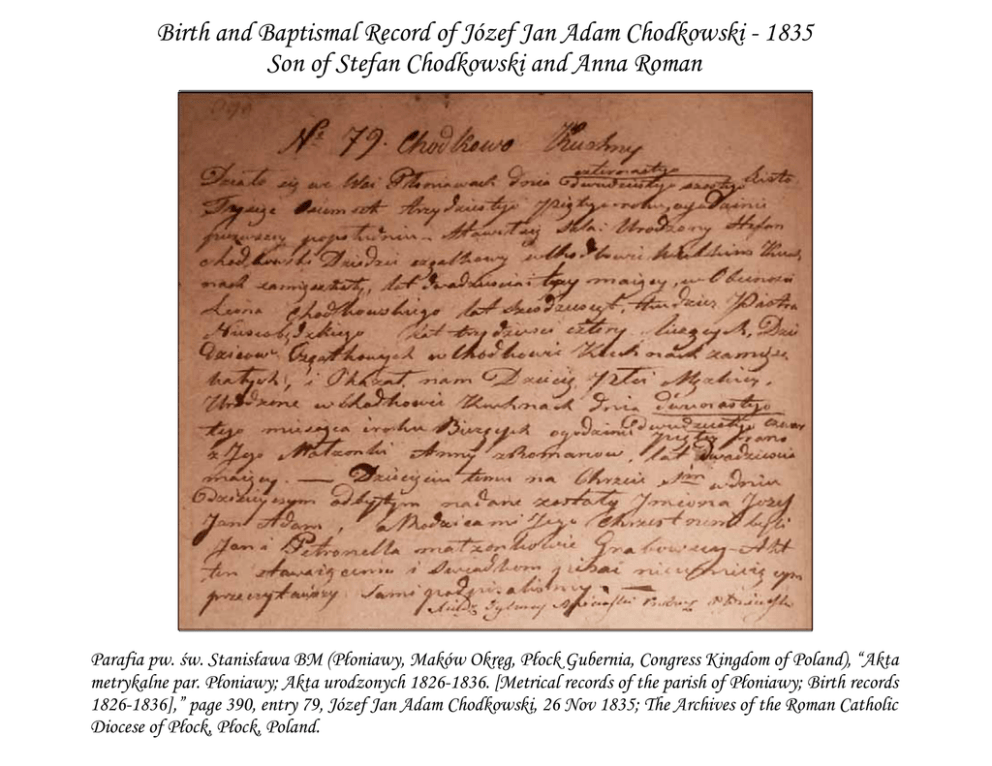 Birth and Baptismal Record of Józef Jan Adam Chodkowski - 1835
Son of Stefan Chodkowski and Anna Roman
390
Nº 79. Chodkowo Kuchny
czternastego
Działo się we Wsi Płoniawach dnia dwudziestego szostego Listo
Tysiąc osiemset trzydziestego piątego roku, o godzinie
pierwszey popołudniu. Stawił się Urodzony Stefan
Chodkowski Dziedzic cząstkowy w Chodkowie Kuch
nach zamięszkały, lat dwadzieścia trzy maiący, w Obecności
Leona Chodkowskiego lat sześdziesiąt, tudzież Piotra
lat trzydzieści cztery liczących, Dzie
dziców Cząstkowych w Chodkowie Kuchnach zamięsz
kałych, i Okazał nam Dziecię płci Męzkiey,
Urodzone w Chodkowie Kuchnach dnia dwunastego
tego miesiąca i roku Bieżących o godzinie piątey rano
z Jego Małżonki Anny z Romanow, lat dwadzieścia
maiącey. — Dziecięciu temu na Chrzcie Stym w dniu
Dzisieyszym odbytym nadane zostały Jmiona Jozef
Jan Adam, a Rodzicami Jego Chrzestnemi byli
Jan i Petronella małżonkowie Grabowscy — Akt
ten stawaiącemu i Swiadkom pisać nieumieiącym
przeczytawszy Sami podpisaliśmy.
Parafia pw. św. Stanisława BM (Płoniawy, Maków Okręg, Płock Gubernia, Congress Kingdom of Poland), “Akta
metrykalne par. Płoniawy; Akta urodzonych 1826-1836. [Metrical records of the parish of Płoniawy; Birth records
1826-1836],” page 390, entry 79, Józef Jan Adam Chodkowski, 26 Nov 1835; The Archives of the Roman Catholic
Diocese of Płock, Płock, Poland.